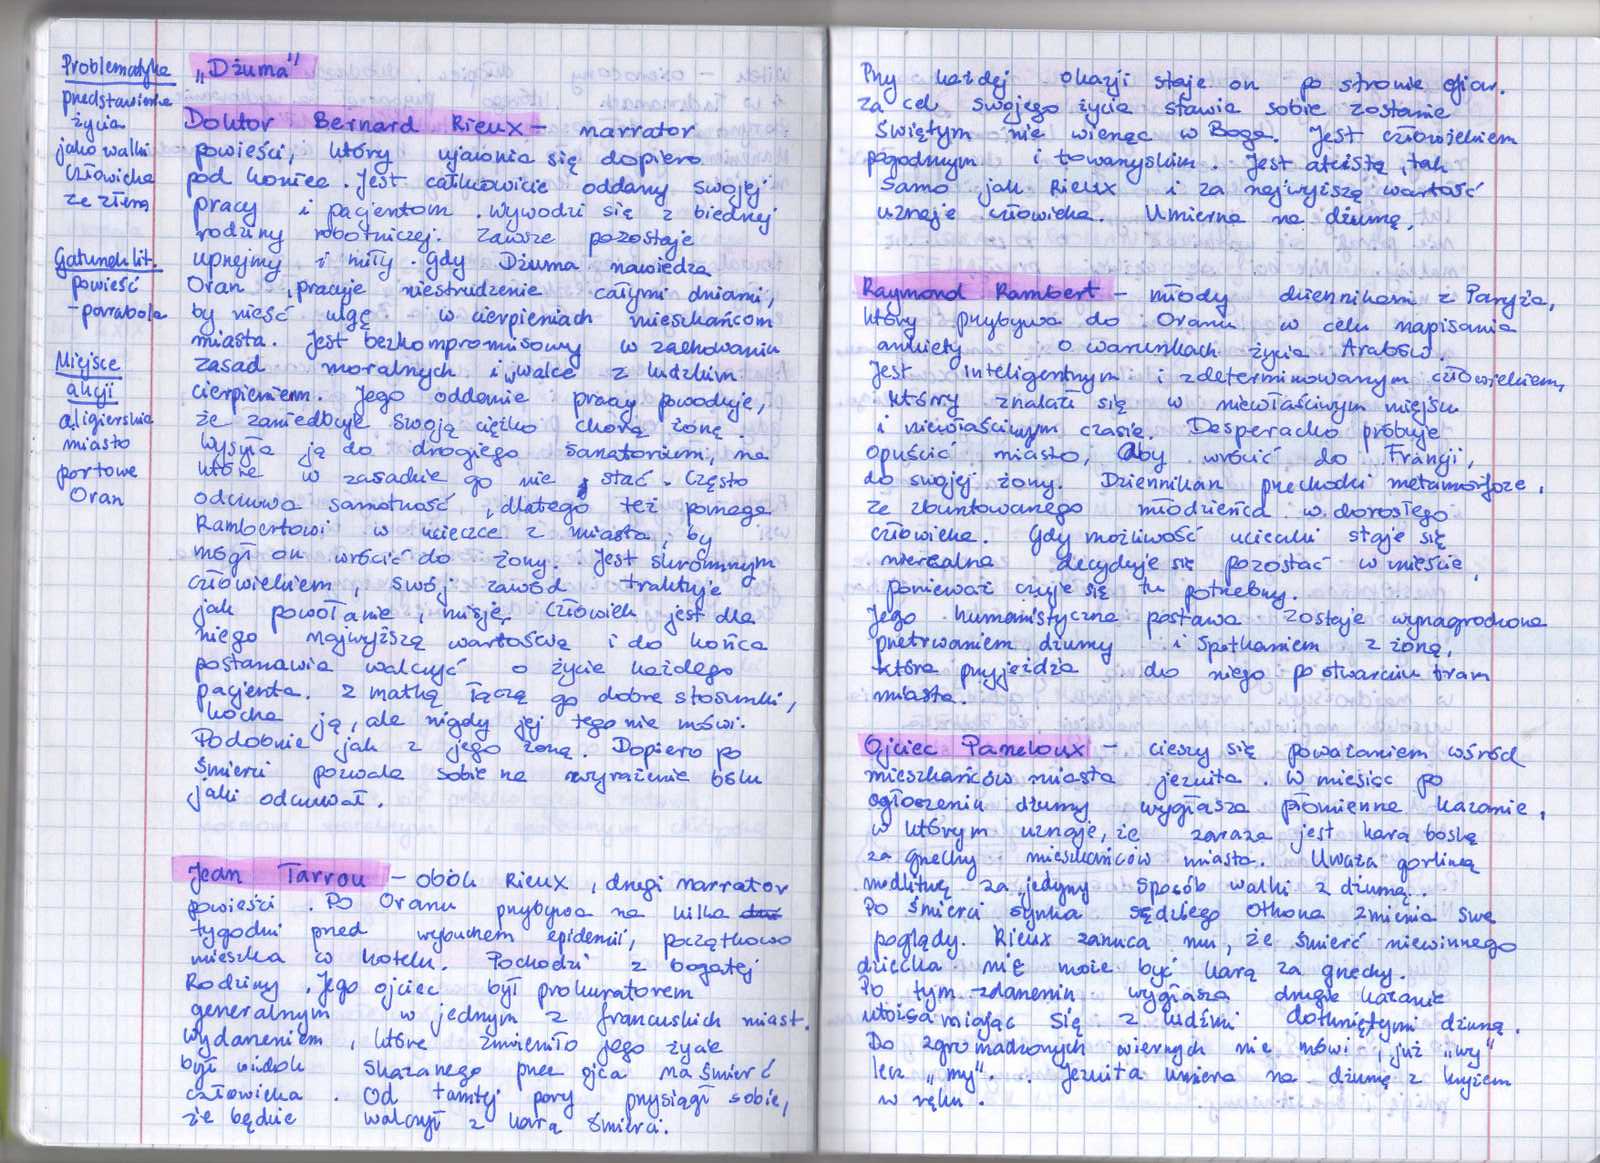 Problematyka
przedstawienie
życia
jako walki
człowieka
ze złem
Gatunek lit.
powieść
- parabola
Miejsce
akcji
algierskie
miasto
portowe
Oran
„Dżuma"
Doktor Bernard Rieux - narrator
powieści, który ujawnia się dopiero
pod koniec. Jest całkowicie oddany swojej
pracy i pacjentom. Wywodzi się z biednej
rodziny robotniczej. Zawsze pozostaje
uprzejmy i miły. Gdy Dżuma nawiedza
Oran, pracuje niestrudzenie całymi dniami,
by nieść ulgę w cierpieniach mieszkańcom
miasta. Jest bezkompromisowy w zachowaniu
zasad moralnych i walce z ludzkim
cierpieniem. Jego oddanie pracy powoduje,
że zaniedbuje swoją ciężko chorą żonę.
Wysyła ją do drogiego sanatorium, na
które w zasadzie go nie stać. Często
odczuwa samotność, dlatego też pomaga
Rambertowi w ucieczce z miasta, by
mógł on wrócić do żony. Jest skromnym
człowiekiem, swój zawód traktuje
jak powołanie, misję. Człowiek jest dla
niego najwyższą wartością i do końca
postanawia walczyć o życie każdego
pacjenta. Z matką łączą go dobre stosunki,
kocha ją, ale nigdy jej tego nie mówi.
Podobnie jak z jego żoną. Dopiero po
śmierci pozwala sobie na wyrażenie bólu
jaki odczuwał.
Jean Tarrou - obok Rieux, drugi narrator
powieści. Po Oranu przybywa na kilka
tygodni przed wybuchem epidemii, początkowo
mieszka w hotelu. Pochodzi z bogatej
Rodziny. Jego ojciec był prokuratorem
generalnym w jednym z francuskich miast.
Wydarzeniem, które zmieniło jego życie
był widok skazanego przez ojca na śmierć
człowieka. Od tamtej pory przysiągł sobie,
że będzie walczył z karą śmierci.
Przy każdej okazji staje on po stronie ofiar.
Za cel swojego życia stawia sobie zostanie
Świętym nie wierząc w Boga. Jest człowiekiem
pogodnym i towarzyskim. Jest ateistą, tak
samo jak Rieux i za najwyższą wartość
uznaje człowieka. Umiera na dżumę.
Raymond Rambert - młody dziennikarz z Paryża,
który przybywa do Oranu w celu napisania
ankiety o warunkach życia Arabów.
Jest inteligentnym i zdeterminowanym człowiekiem,
który znalazł się w niewłaściwym miejscu
i niewłaściwym czasie. Desperacko próbuje
opuścić miasto, aby wrócić do Francji,
do swojej żony. Dziennikarz przechodzi metamorfozę,
ze zbuntowanego młodzieńca w dorosłego
człowieka. Gdy możliwość ucieczki staje się
nierealna decyduje się pozostać w mieście,
ponieważ czuje się tu potrzebny.
Jego humanistyczna postawa zostaje wynagrodzona
przetrwaniem dżumy i spotkaniem z żoną,
która przyjeżdża do niego po otwarciu bram
miasta.
Ojciec Paneloux - cieszy się poważaniem wśród
mieszkańców miasta jezuita. W miesiąc po
ogłoszeniu dżumy wygłasza płomienne kazanie,
w którym uznaje, że zaraza jest karą boską
za grzechy mieszkańców miasta. Uważa gorliwą
modlitwę za jedyny sposób walki z dżumą.
Po śmierci synka sędziego Othona zmienia swe
poglądy. Rieux zarzuca mu, że śmierć niewinnego
dziecka nie może być karą za grzechy.
Po tym zdarzeniu wygłasza drugie kazanie
utożsamiając się z ludźmi dotkniętymi dżumą.
Do zgromadzonych wiernych nie mówi już „wy"
lecz „my". Jezuita umiera na dżumę z krzyżem
w ręku.